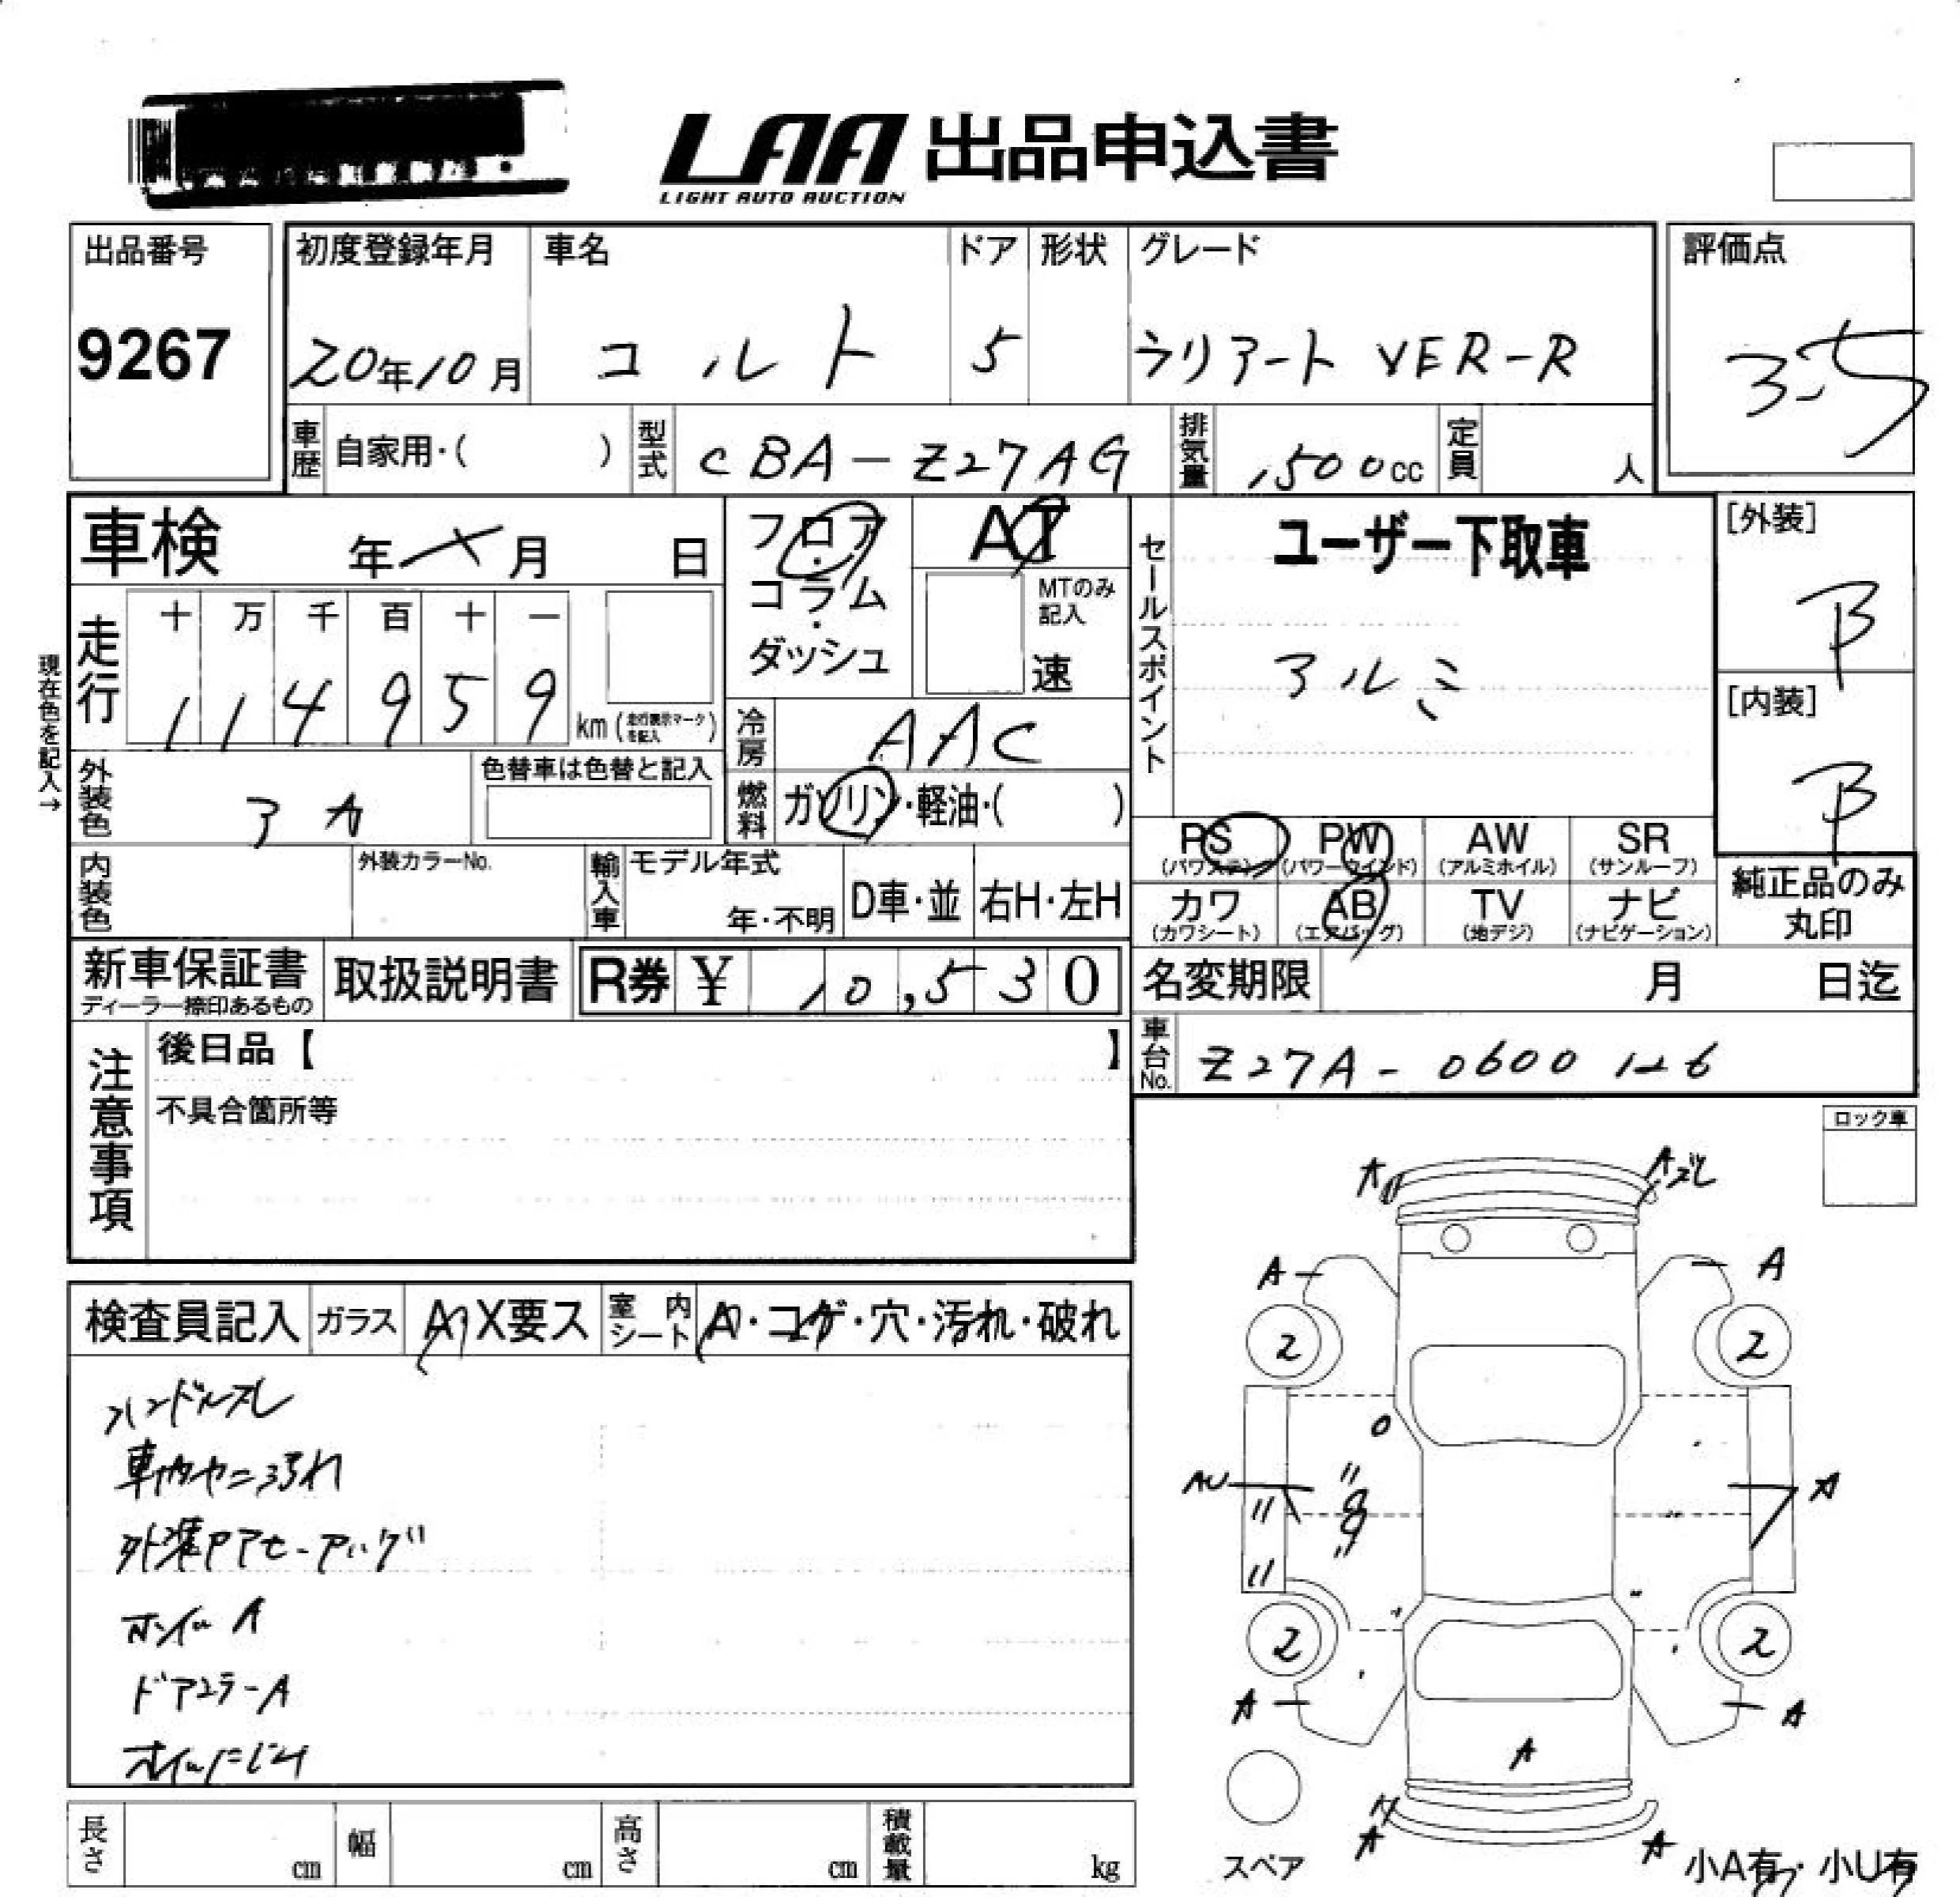 LAA 出品申込書
LIGHT AUTO AUCTION
出品番号 初度登録年月 車名 ドア 形状 グレード 評価点
9267 20年10月 コルト 5 ラリアート VER-R 3.5
車歴 自家用・( ) 型式 CBA-Z27AG 排気量 1500cc 定員 人
車検 年 X 月 日 フロア・コラム・ダッシュ AT
MTのみ記入 速
セールスポイント ユーザー下取車
アルミ
[外装] B
[内装] B
現在色を記入→
走行 十 万 千 百 十 一
1 1 4 9 5 9 km (走行表示マークを記入)
冷房 AAC
外装色 アカ 色替車は色替と記入 燃料 ガソリン・軽油・( )
PS (パワステ) PW (パワーウインド) AW (アルミホイル) SR (サンルーフ)
カワ (カワシート) AB (エアバッグ) TV (地デジ) ナビ (ナビゲーション)
純正品のみ丸印
内装色 外装カラーNo. 輸入車 モデル年式 年・不明 D車・並 右H・左H
新車保証書 ディーラー捺印あるもの 取扱説明書 R券 ¥ 10,530 名変期限 月 日迄
注意事項 後日品【 】 車台No. Z27A-0600126
不具合箇所等
ロック車
A Aズレ
A A
2 2
検査員記入 ガラス A X要ス 室内シート A・コゲ・穴・汚れ・破れ
ハンドルスレ
車内ヤニ汚れ
AU A
ホイール A
2 2
ドアミラーA
A A
オイルにじみ
A
A A
スペア 小A有・小U有
長さ cm 幅 cm 高さ cm 積載量 kg